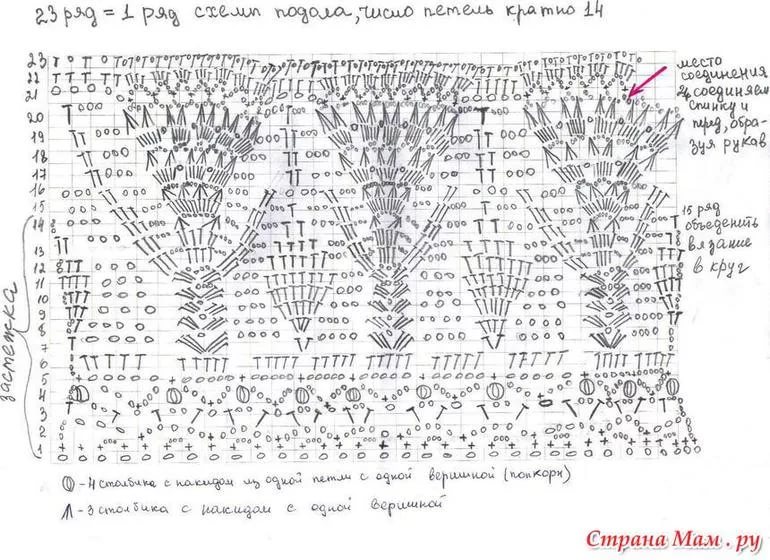 23 ряд = 1 ряд схемы подола, число петель кратно 14
место
соединения
соединяем
спинку и
перед, обра-
зуя рукав
15 ряд
объеденить
вязание
в круг
застежка
23
22
21
20
19
18
17
16
15
14
13
12
11
10
9
8
7
6
5
4
3
2
1
- 4 столбика с накидом из одной петли с одной вершиной (попкорн)
- 3 столбика с накидом с одной вершиной
Страна Мам.ру